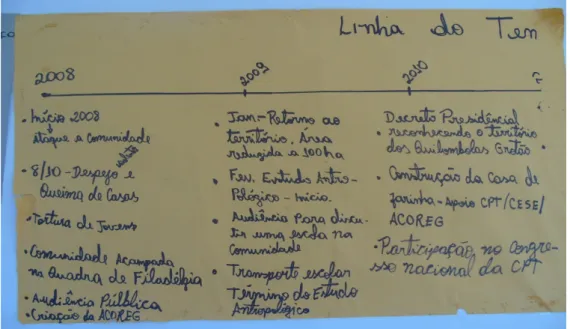 Linha do Tem
2008
2009
2010
• Início 2008
Ataque a Comunidade
• 8/10 - Despejo e
Queima de Casas
• Tortura de Jovens
• Comunidade Acampada
na Quadra de Filadélgia
• Audiência Púlblica
• Criação da ACOREG
• Jan - Retorno ao
território. Área
reduzida a 100ha
• Fev. Estudo Antro-
Pológico - Início.
• Audiência Para discu-
tir uma escola na
Comunidade
• Transporte escolar
Término do Estudo
Antropológico
Decreto Presidêncial
• reconhecendo o território
dos Quilombolas Grotão •
• Construção da Casa de
farinha - Apoio CPT/CESE/
ACOREG
• Participação no Congre-
sso nacional da CPT